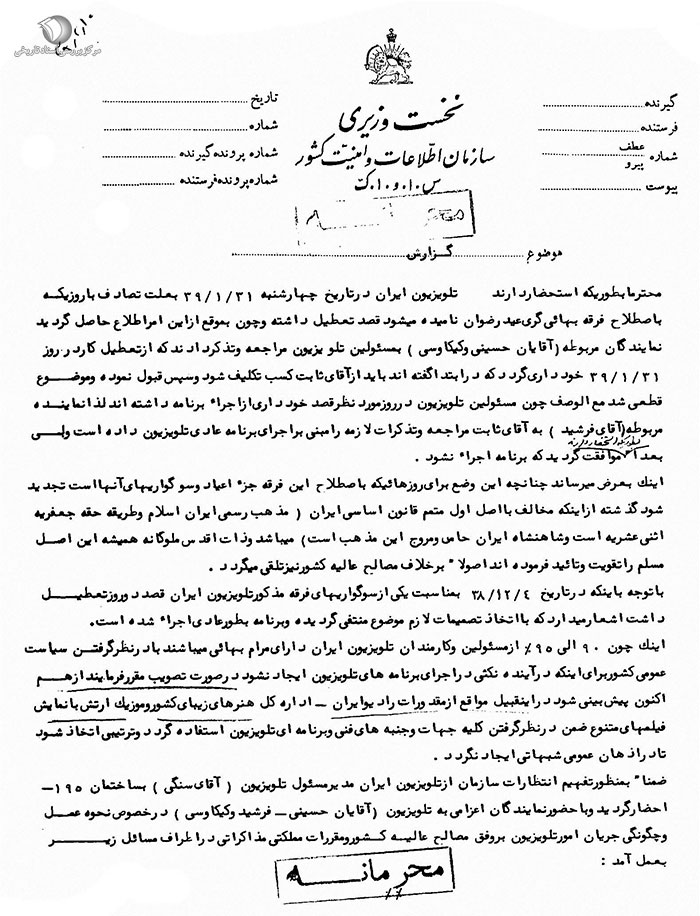 مرکز بررسی اسناد تاریخی
نخست وزیری
سازمان اطلاعات و امنیت کشور
س.ا.و.ا.ک
گیرنده
فرستنده
شماره عطف
پیرو
پیوست
تاریخ
شماره
شماره پرونده گیرنده
شماره پرونده فرستنده
موضوع گزارش
محترما بطوریکه استحضار دارند تلویزیون ایران در تاریخ چهارشنبه ۳۹/۱/۳۱ بعلت تصادف با روزیکه
باصطلاح فرقه بهائی گری عید رضوان نامیده میشود قصد تعطیل داشته و چون بموقع از این امر اطلاع حاصل گردید
نمایندگان مربوطه (آقایان حسینی و کیکاوسی) بمسئولین تلویزیون مراجعه و تذکر دادند که از تعطیل کار در روز
۳۹/۱/۳۱ خود داری گردد که در ابتدا گفته اند باید از آقای ثابت کسب تکلیف شود و سپس قبول نموده و موضوع
قطعی شد مع الوصف چون مسئولین تلویزیون در روز مورد نظر قصد خود داری از اجراء برنامه داشته اند لذا نماینده
مربوطه (آقای فرشید) به آقای ثابت مراجعه و تذکرات لازمه را مبنی بر اجرای برنامه عادی تلویزیون داده است ولی
بعدا موافقت گردید که برنامه اجراء نشود .
اینك بعرض میرساند چنانچه این وضع برای روزهائیکه باصطلاح این فرقه جزء اعیاد و سوگواریهای آنها است تجدید
شود گذشته از اینکه مخالف با اصل اول متمم قانون اساسی ایران ( مذهب رسمی ایران اسلام و طریقه حقه جعفریه
اثنی عشریه است و شاهنشاه ایران حامی و مروج این مذهب است) میباشد و ذات اقدس ملوکانه همیشه این اصل
مسلم را تقویت و تائید فرموده اند اصولا" بر خلاف مصالح عالیه کشور نیز تلقی میگردد .
با توجه باینکه در تاریخ ۳۸/۱۲/۴ بمناسبت یکی از سوگواریهای فرقه مذکور تلویزیون ایران قصد دو روز تعطیل
داشت اشعار میدارد که با اتخاذ تصمیمات لازم موضوع منتفی گردیده و برنامه بطور عادی اجراء شده است.
اینك چون ۹۰ الی ۹۵٪ از مسئولین و کارمندان تلویزیون ایران دارای مرام بهائی میباشند با در نظر گرفتن سیاست
عمومی کشور برای اینکه در آینده نکثی در اجرای برنامه های تلویزیون ایجاد نشود در صورت تصویب مقرر فرمایند از هم
اکنون پیش بینی شود در اینقبیل مواقع از مقدورات رادیو ایران – اداره کل هنرهای زیبای کشور و موزیك ارتش با نمایش
فیلمهای متنوع ضمن در نظر گرفتن کلیه جهات و جنبه های فنی و برنامه ای تلویزیون استفاده گردد و ترتیبی اتخاذ شود
تا در اذهان عمومی شبهاتی ایجاد نگردد .
ضمنا" بمنظور تفهیم انتظارات سازمان از تلویزیون ایران مدیر مسئول تلویزیون ( آقای سنگی ) بساختمان ۱۹۵-
احضار گردید و با حضور نمایندگان اعزامی به تلویزیون (آقایان حسینی – فرشید و کیکاوسی ) در خصوص نحوه عمل
و چگونگی جریان امور تلویزیون بر وفق مصالح عالیه کشور و مقررات مملکتی مذاکراتی در اطراف مسائل زیر
بعمل آمد :
محرمانه